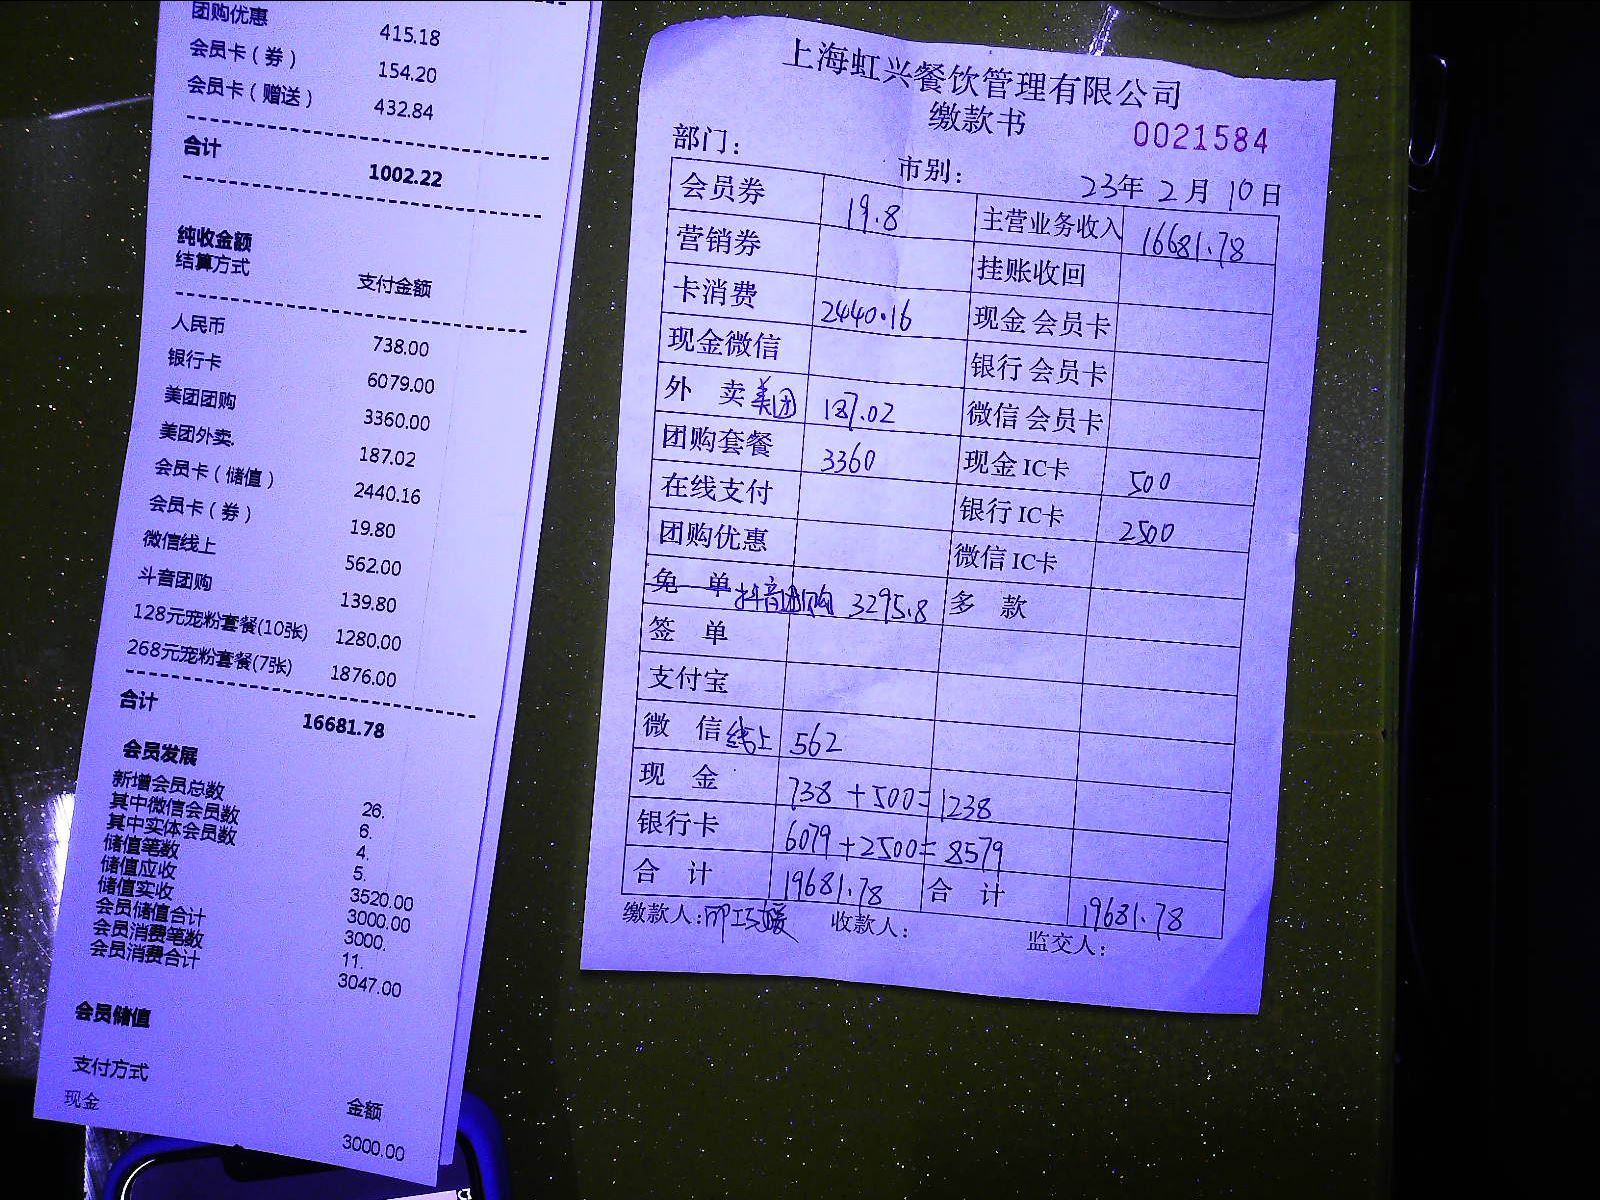 团购优惠 415.18
会员卡（券） 154.20
会员卡（赠送） 432.84
合计 1002.22
纯收金额
结算方式 支付金额
人民币 738.00
银行卡 6079.00
美团团购 3360.00
美团外卖. 187.02
会员卡（储值） 2440.16
会员卡（券） 19.80
微信线上 562.00
斗音团购 139.80
128元宠粉套餐(10张) 1280.00
268元宠粉套餐(7张) 1876.00
合计 16681.78
会员发展
新增会员总数 26.
其中微信会员数 6.
其中实体会员数 4.
储值笔数 5.
储值应收 3520.00
储值实收 3000.00
会员储值合计 3000.
会员消费笔数 11.
会员消费合计 3047.00
会员储值
支付方式 金额
现金 3000.00
上海虹兴餐饮管理有限公司
缴款书 0021584
部门： 市别： 23年 2月 10日
会员券 19.8 主营业务收入 16681.78
营销券 挂账收回
卡消费 2440.16 现金会员卡
现金微信 银行会员卡
外卖美团 187.02 微信会员卡
团购套餐 3360 现金IC卡 500
在线支付 银行IC卡 2500
团购优惠 微信IC卡
免单抖音团购 3295.8 多款
签单
支付宝
微信线上 562
现金 738+500=1238
银行卡 6079+2500=8579
合计 19681.78 合计 19681.78
缴款人: 收款人: 监交人: